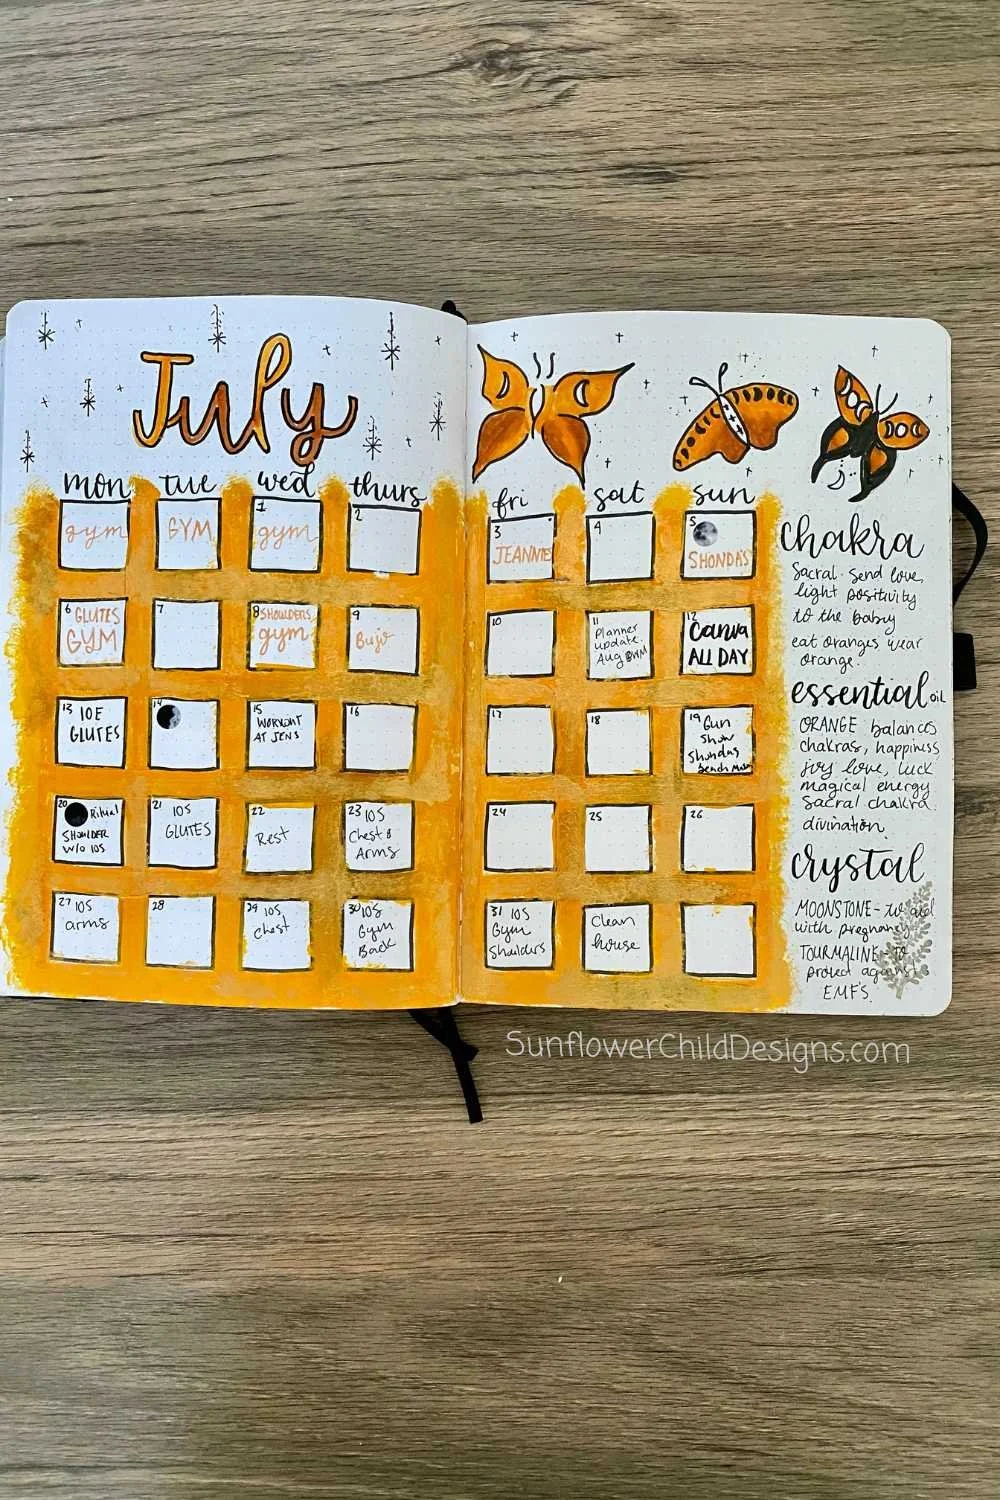 July
mon tue wed thurs
fri sat sun
gym
GYM
1
gym
2
3
JEANNIE
4
5
SHONDA'S
6 GLUTES
GYM
7
8 SHOULDERS
gym
9
Bujo
10
11
Planner
update
Aug
12
Canva
ALL DAY
13 10E
GLUTES
14
15
WORKOUT
AT JENS
16
17
18
19 Gun
Show
Shondas
20 Ritual
SHOULDER
W/O 10S
21 10S
GLUTES
22
Rest
23 10S
Chest &
Arms
24
25
26
27 10S
arms
28
29 10S
Chest
30 10S
Gym
Back
31 10S
Gym
Shoulders
Clean
house
chakra
Sacral. Send love,
light positivity
to the baby
eat oranges wear
orange.
essential oil
ORANGE balances
chakras, happiness,
joy love, luck
magical energy
Sacral chakra.
divination.
crystal
MOONSTONE - to aid
with pregnancy
TOURMALINE - to
protect against
EMF'S.
SunflowerChildDesigns.com